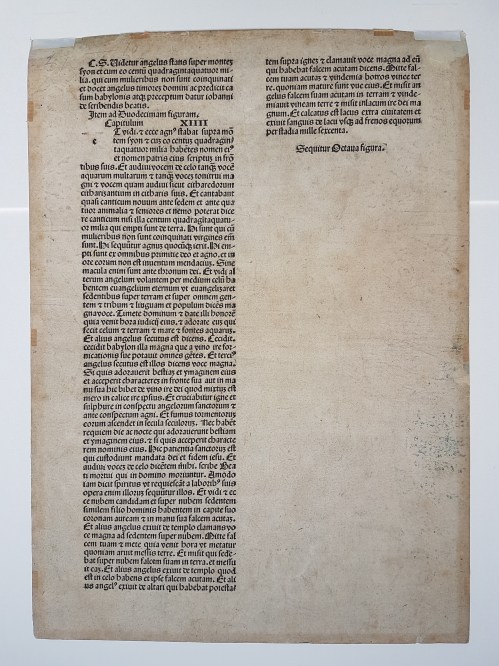 C.S. Uidetur angelus stans super montem
syon et cum eo centū quadragintaquatuor mi-
lia. qui cum mulieribus non sunt coinquinati
et docet angelus timorem domini ac predicit ca-
sum babylonis atqȝ preceptum datur iohanni
de scribendis beatis.
Item ad Duodecimam figuram.
Capitulum XIIII
T vidi. ⁊ ecce agnꝰ stabat supra mō
tem syon ⁊ cum eo centus quadragin
taquatuor milia habētes nomen eiꝰ
et nomen patris eius scriptū in frō
tibus suis. Et audiui vocem de celo tanqȝ vocē
aquarum multarum ⁊ tanqȝ vocez tonitrui ma
gni ⁊ vocem quam audiui sicut citharedorum
citharizantium in citharis suis. Et cantabant
quasi canticum nouum ante sedem et ante qua
tuor animalia ⁊ seniores et nemo poterat dice
re canticum nisi illa centum quadragītaquatu-
or milia qui empti sunt de terra. Hi sunt qui cū
mulieribus non sunt coinquinati virgines eñ
sunt. Hi sequūtur agnū quocūqȝ ierit. Hi em-
pti sunt ex omnibus primitie deo et agno. et in
ore eorum non est inuentum mendaciuȝ. Sine
macula enim sunt ante thronum dei. Et vidi al
terum angelum volantem per medium celū ha
bentem euangelium eternum vt euangelizaret
sedentibus super terram et super omnem gen-
tem ⁊ tribum ⁊ linguam et populum dicēs ma
gna voce. Timete dominum ⁊ date illi honorē
quia venit hora iudicij eius. ⁊ adorate eum qui
fecit celum ⁊ terram ⁊ mare ⁊ fontes aquarū.
Et alius angelus secutus est dicens. Cecidit.
cecidit babylon illa magna que a vino ire for-
nicationis sue potauit omnes gētes. Et terciꝰ
angelus secutus est illos dicens voce magna.
Si quis adorauerit bestiaȝ et ymaginem eius
et acceperit characterem in fronte sua aut in ma
nu sua hic bibet de vino ire dei quod mixtuȝ est
mero in calice ire ipsius. Et cruciabitur igne et
sulphure in conspectu angelorum sanctorum ⁊
ante conspectum agni. Et fumus tormentorum
eorum ascendet in secula seculoruȝ. Nec habēt
requiem die ac nocte qui adorauerunt bestiam
et ymaginem eius. ⁊ si quis acceperit characte
rem nominis eius. Hic patientia sanctorum est
qui custodiunt mandata dei et fidem iesu. Et
audiui vocem de celo dicētem mihi. scribe Bea
ti mortui qui in domino moriuntur. Amodo
iam dicit spiritus vt requiescāt a laboribꝰ suis
opera enim illorum sequūtur illos. Et vidi ⁊ ec
ce nubem candidam et super nubem sedentem
similem filio hominis habentem in capite suo
coronam auream ⁊ in manu sua falcem acutaȝ.
Et alius angelus exiuit de templo clamans vo
ce magna ad sedentem super nubem. Mitte fal
cem tuam ⁊ mete quia venit hora vt metatur
quoniam aruit messis terre. Et misit qui sede-
bat super nubem falcem suam in terra. et messu
it eaȝ. Et alius angelus exiuit de templo quod
est in celo habens et ipse falcem acutam. Et ali
us angelꝰ exiuit de altari qui habebat potesta
tem supra ignez ⁊ clamauit voce magna ad eū
qui habebat falcem acutam dicens. Mitte fal-
cem tuam acutaȝ ⁊ vindemia botros vinee ter
re. quoniam mature sunt vue eius. Et misit an
gelus falcem suam acutam in terram ⁊ vinde-
miauit vineam terre ⁊ misit in lacum ire dei ma
gnum. Et calcatus est lacus extra ciuitatem et
exiuit sanguis de lacu vsqȝ ad frenos equorum
per stadia mille sexcenta.
Sequitur Octaua figura.